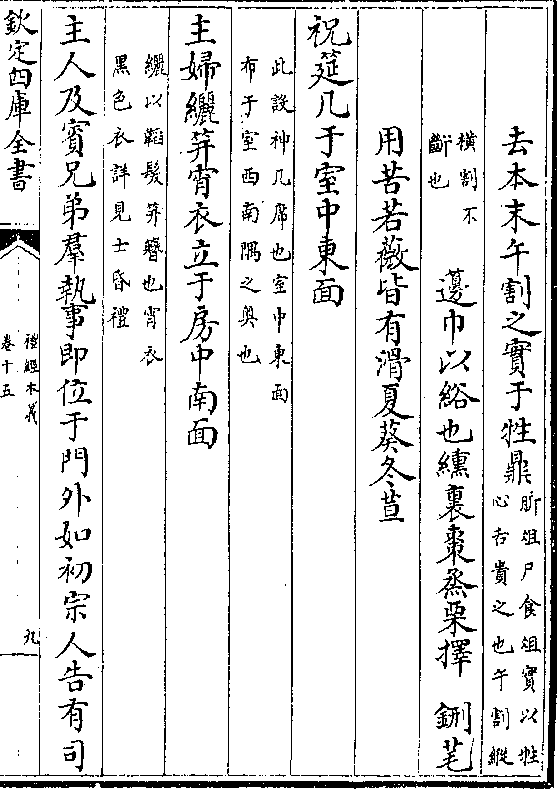 去本末午割之實于牲鼎
肵俎尸食俎實以牲
心舌貴之也午割縱
橫割不
斷也
籩巾以綌也纁裏棗烝栗擇 鉶芼
用苦若薇皆有滑夏葵冬荁
祝筵几于室中東面
此設神几席也室中東面
布于室西南隅之奥也
主婦纚笄宵衣立于房中南面
纚以韜髮笄簪也宵衣
黑色衣詳見士昏禮
主人及賓兄弟羣執事即位于門外如初宗人告有司
欽定四庫全書
禮經本義
卷十五
九